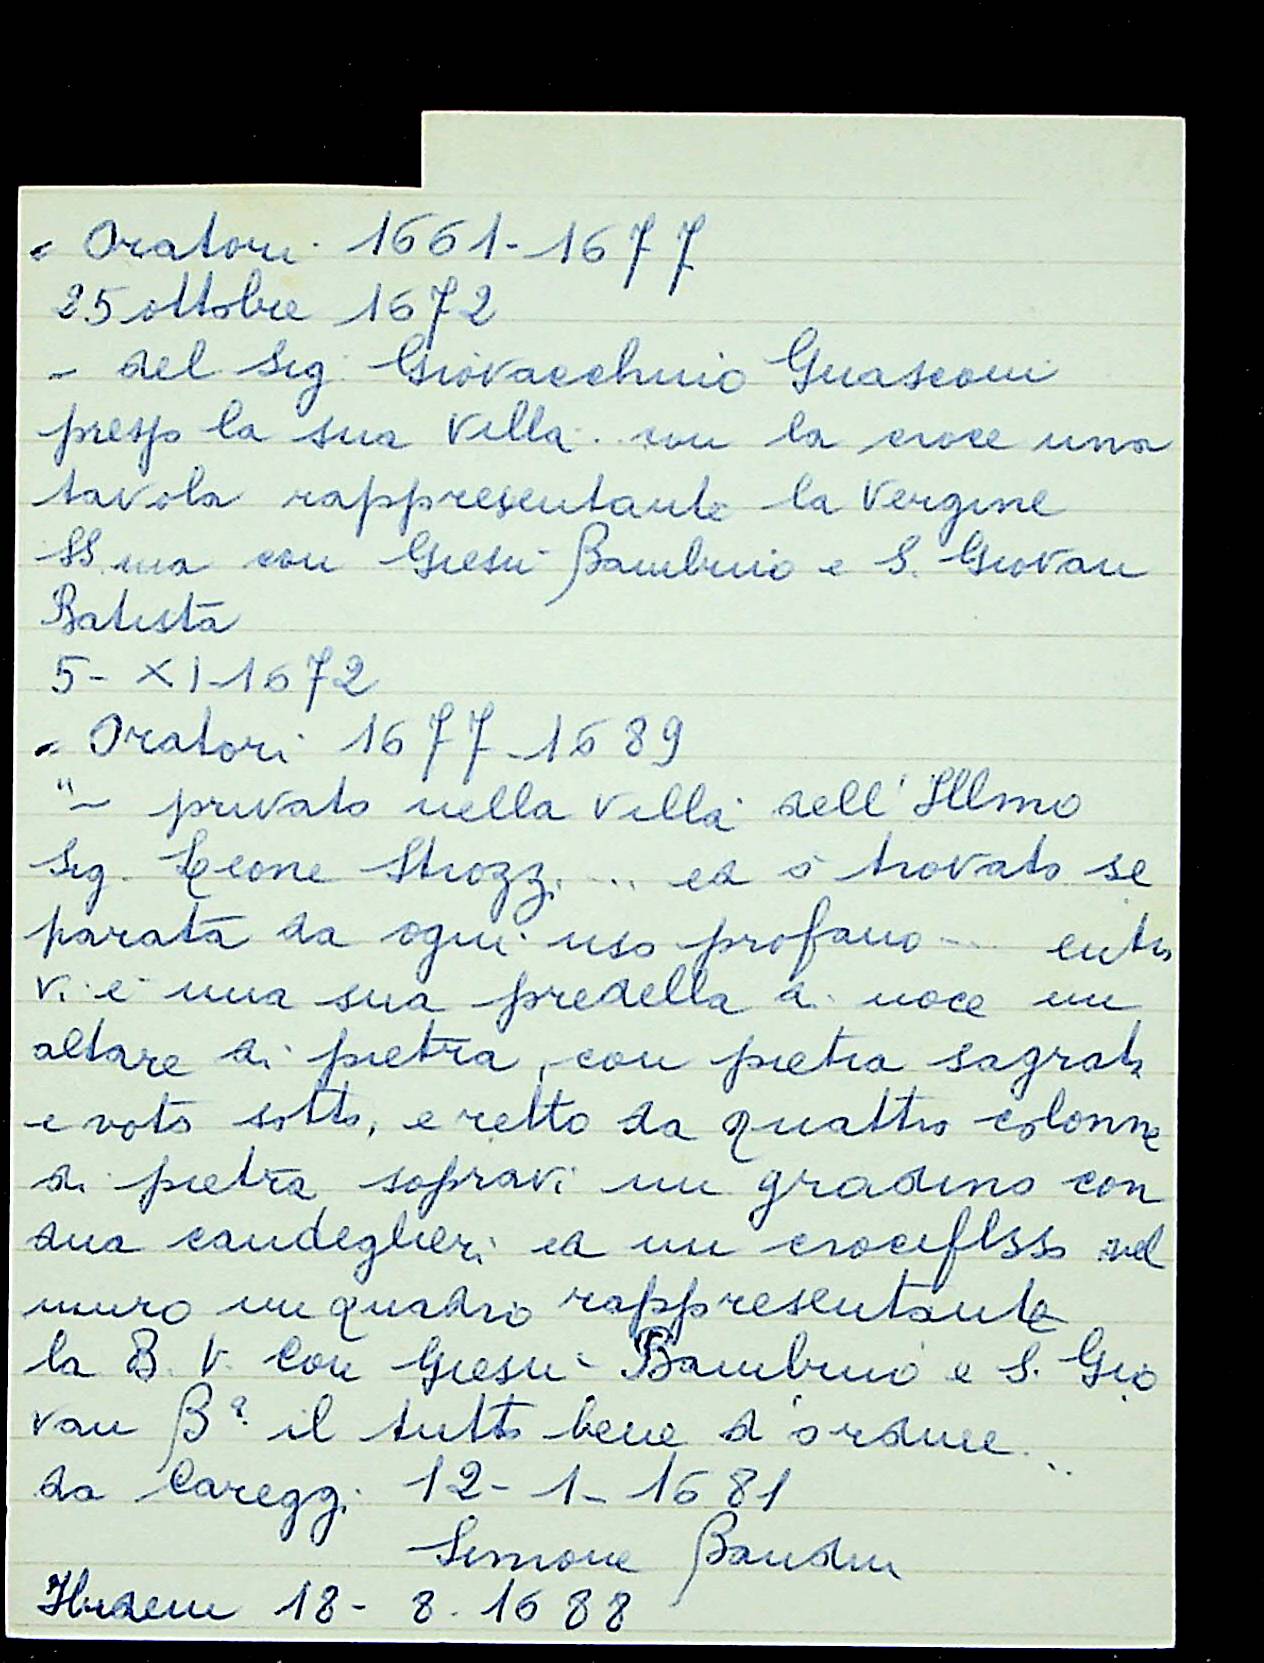 " Oratori 1661-1677
25 ottobre 1672
- del Sig. Giovacchino Guasconi
presso la sua Villa .. con la croce una
tavola rappresentante la Vergine
SS.ma con Giesù Bambino e S. Giovan
Batista
5- XI-1672
" Oratori 1677-1689
"- privato nella Villa dell' Illmo
Sig. Leone Strozzi ... ed o trovato se
parata da ogni uso profano ... entro
vi è una sua predella di noce un
altare di pietra, con pietra sagrata
e voto sotto, e retto da quattro colonne
di pietra sopravi un gradino con
dua candeglieri ed un crocifisso nel
muro un quadro rappresentante
la B. V. con Giesù Bambino e S. Gio
van Bª. il tutto bene d'ordine ..
da Careggi 12-1-1681
Simone Bandini
Ibidem 18-8.1688